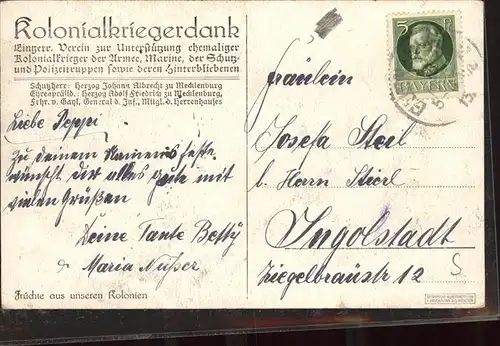 Kolonialkriegerdank
Eingetr. Verein zur Unterstützung ehemaliger
Kolonialkrieger der Armee, Marine, der Schutz-
und Polizeitruppen sowie deren Hinterbliebenen
Schutzherr: Herzog Johann Albrecht zu Mecklenburg
Ehrenpräsid.: Herzog Adolf Friedrich zu Mecklenburg,
Frhr. v. Gayl, General d. Inf., Mitgl. d. Herrenhauses
5 Pf
BAYERN
Liebe Peppi
Zu deinem Namensfeste
wünscht dir alles gute mit
vielen Grüßen
Deine Tante Betty
& Maria Nußer
Früchte aus unseren Kolonien
Fräulein
Josefa Sterl
b. Herrn Sterl
Ingolstadt
Ziegelbräustr 12
S